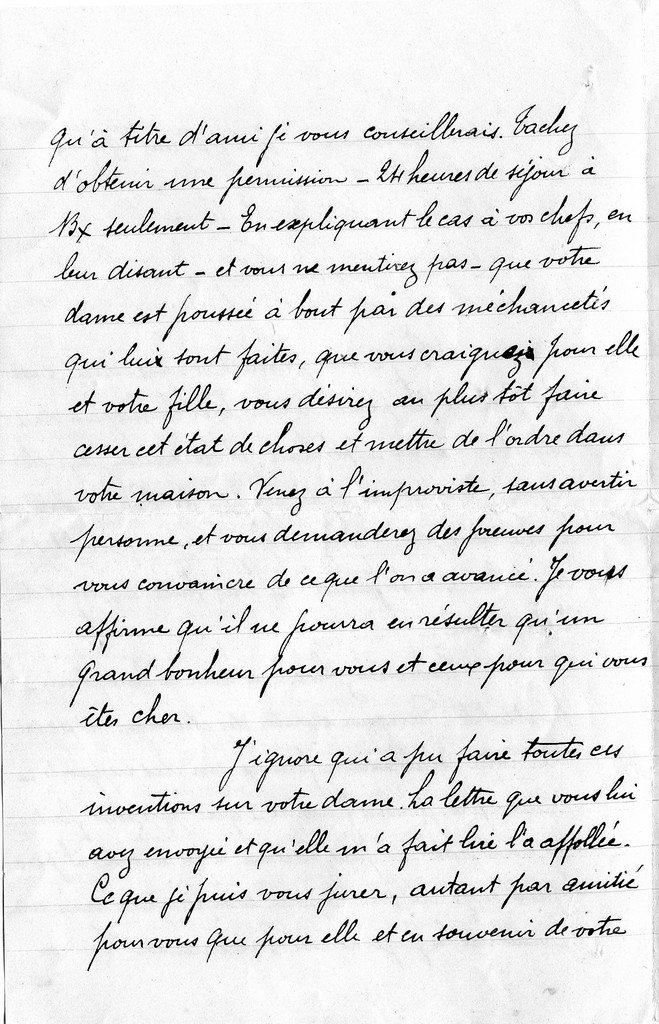 qu'à titre d'ami je vous conseillerais. Tachez
d'obtenir une permission – 24 heures de séjour à
Bx seulement – En expliquant le cas à vos chefs, en
leur disant – et vous ne mentirez pas – que votre
dame est poussée à bout par des méchancetés
qui lui sont faites, que vous craignez pour elle
et votre fille, vous désirez au plus tôt faire
cesser cet état de choses et mettre de l'ordre dans
votre maison. Venez à l'improviste, sans avertir
personne, et vous demanderez des preuves pour
vous convaincre de ce que l'on a avancé. Je vous
affirme qu'il ne pourra en résulter qu'un
grand bonheur pour vous et ceux pour qui vous
êtes cher.
J'ignore qui a pu faire toutes ces
inventions sur votre dame. La lettre que vous lui
avez envoyée et qu'elle m'a fait lire l'a affollée.
Ce que je puis vous jurer, autant par amitié
pour vous que pour elle et en souvenir de votre